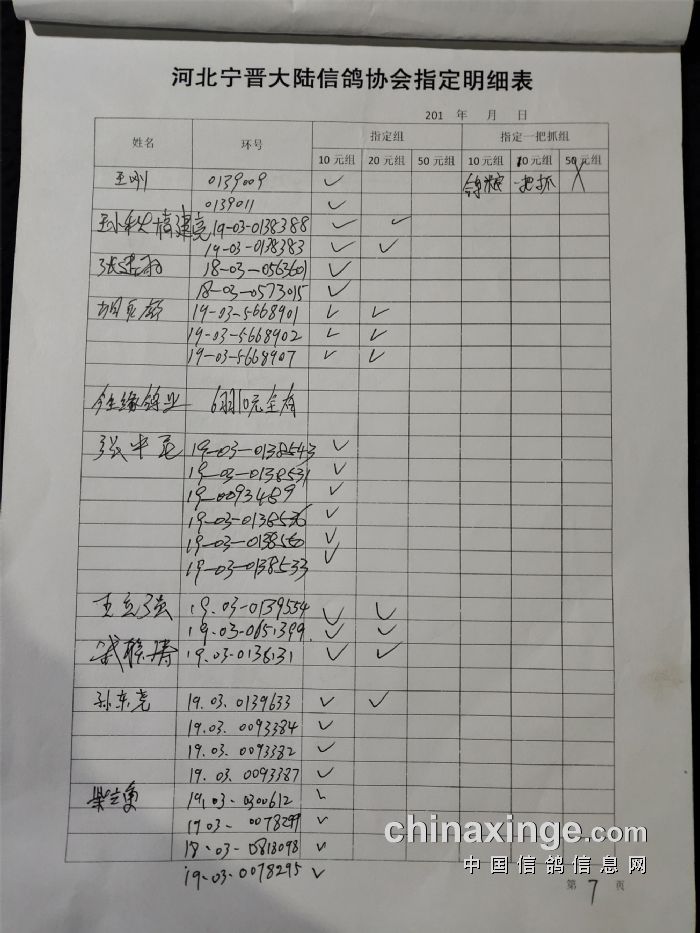 河北宁晋大陆信鸽协会指定明细表
201 年 月 日
姓名 环号 指定组 指定一把抓组
10元组 20元组 50元组 10元组 10元组 50元组
王刚 0139009 ✓ 一把抓 X
0139011 ✓
19-03-0138388 ✓ ✓
19-03-0138383 ✓ ✓
18-03-0563601 ✓
18-03-0573015 ✓
19-03-5668901 ✓ ✓
19-03-5668902 ✓ ✓
19-03-5668907 ✓ ✓
今生缘鸽业 6羽10元全有
张中 19-03-0138543 ✓
19-03-0138531 ✓
19-0093489 ✓
19-03-0138536 ✓
19-03-0138550 ✓
19-03-0138533 ✓
王立强 19.03-0139554 ✓ ✓
19.03-0651399. ✓ ✓
19.03-0138131 ✓ ✓
孙东亮 19.03.0139633 ✓ ✓
19.03.0093384 ✓
19.03.0093382 ✓
19.03.0093387 ✓
19.03-0300612 ✓
1903-0078299 ✓
18-03-0813098 ✓
19-03-0078295 ✓
chinaxinge.com
中国信鸽信息网
第 7 页